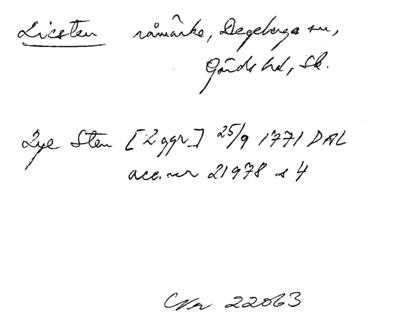 Licsten råmärke, Degeberga sn,
Gärds hd, Sk.
Lye Sten [2 ggr] 25/9 1771 DAL
acc.nr 21978 s 4
22063